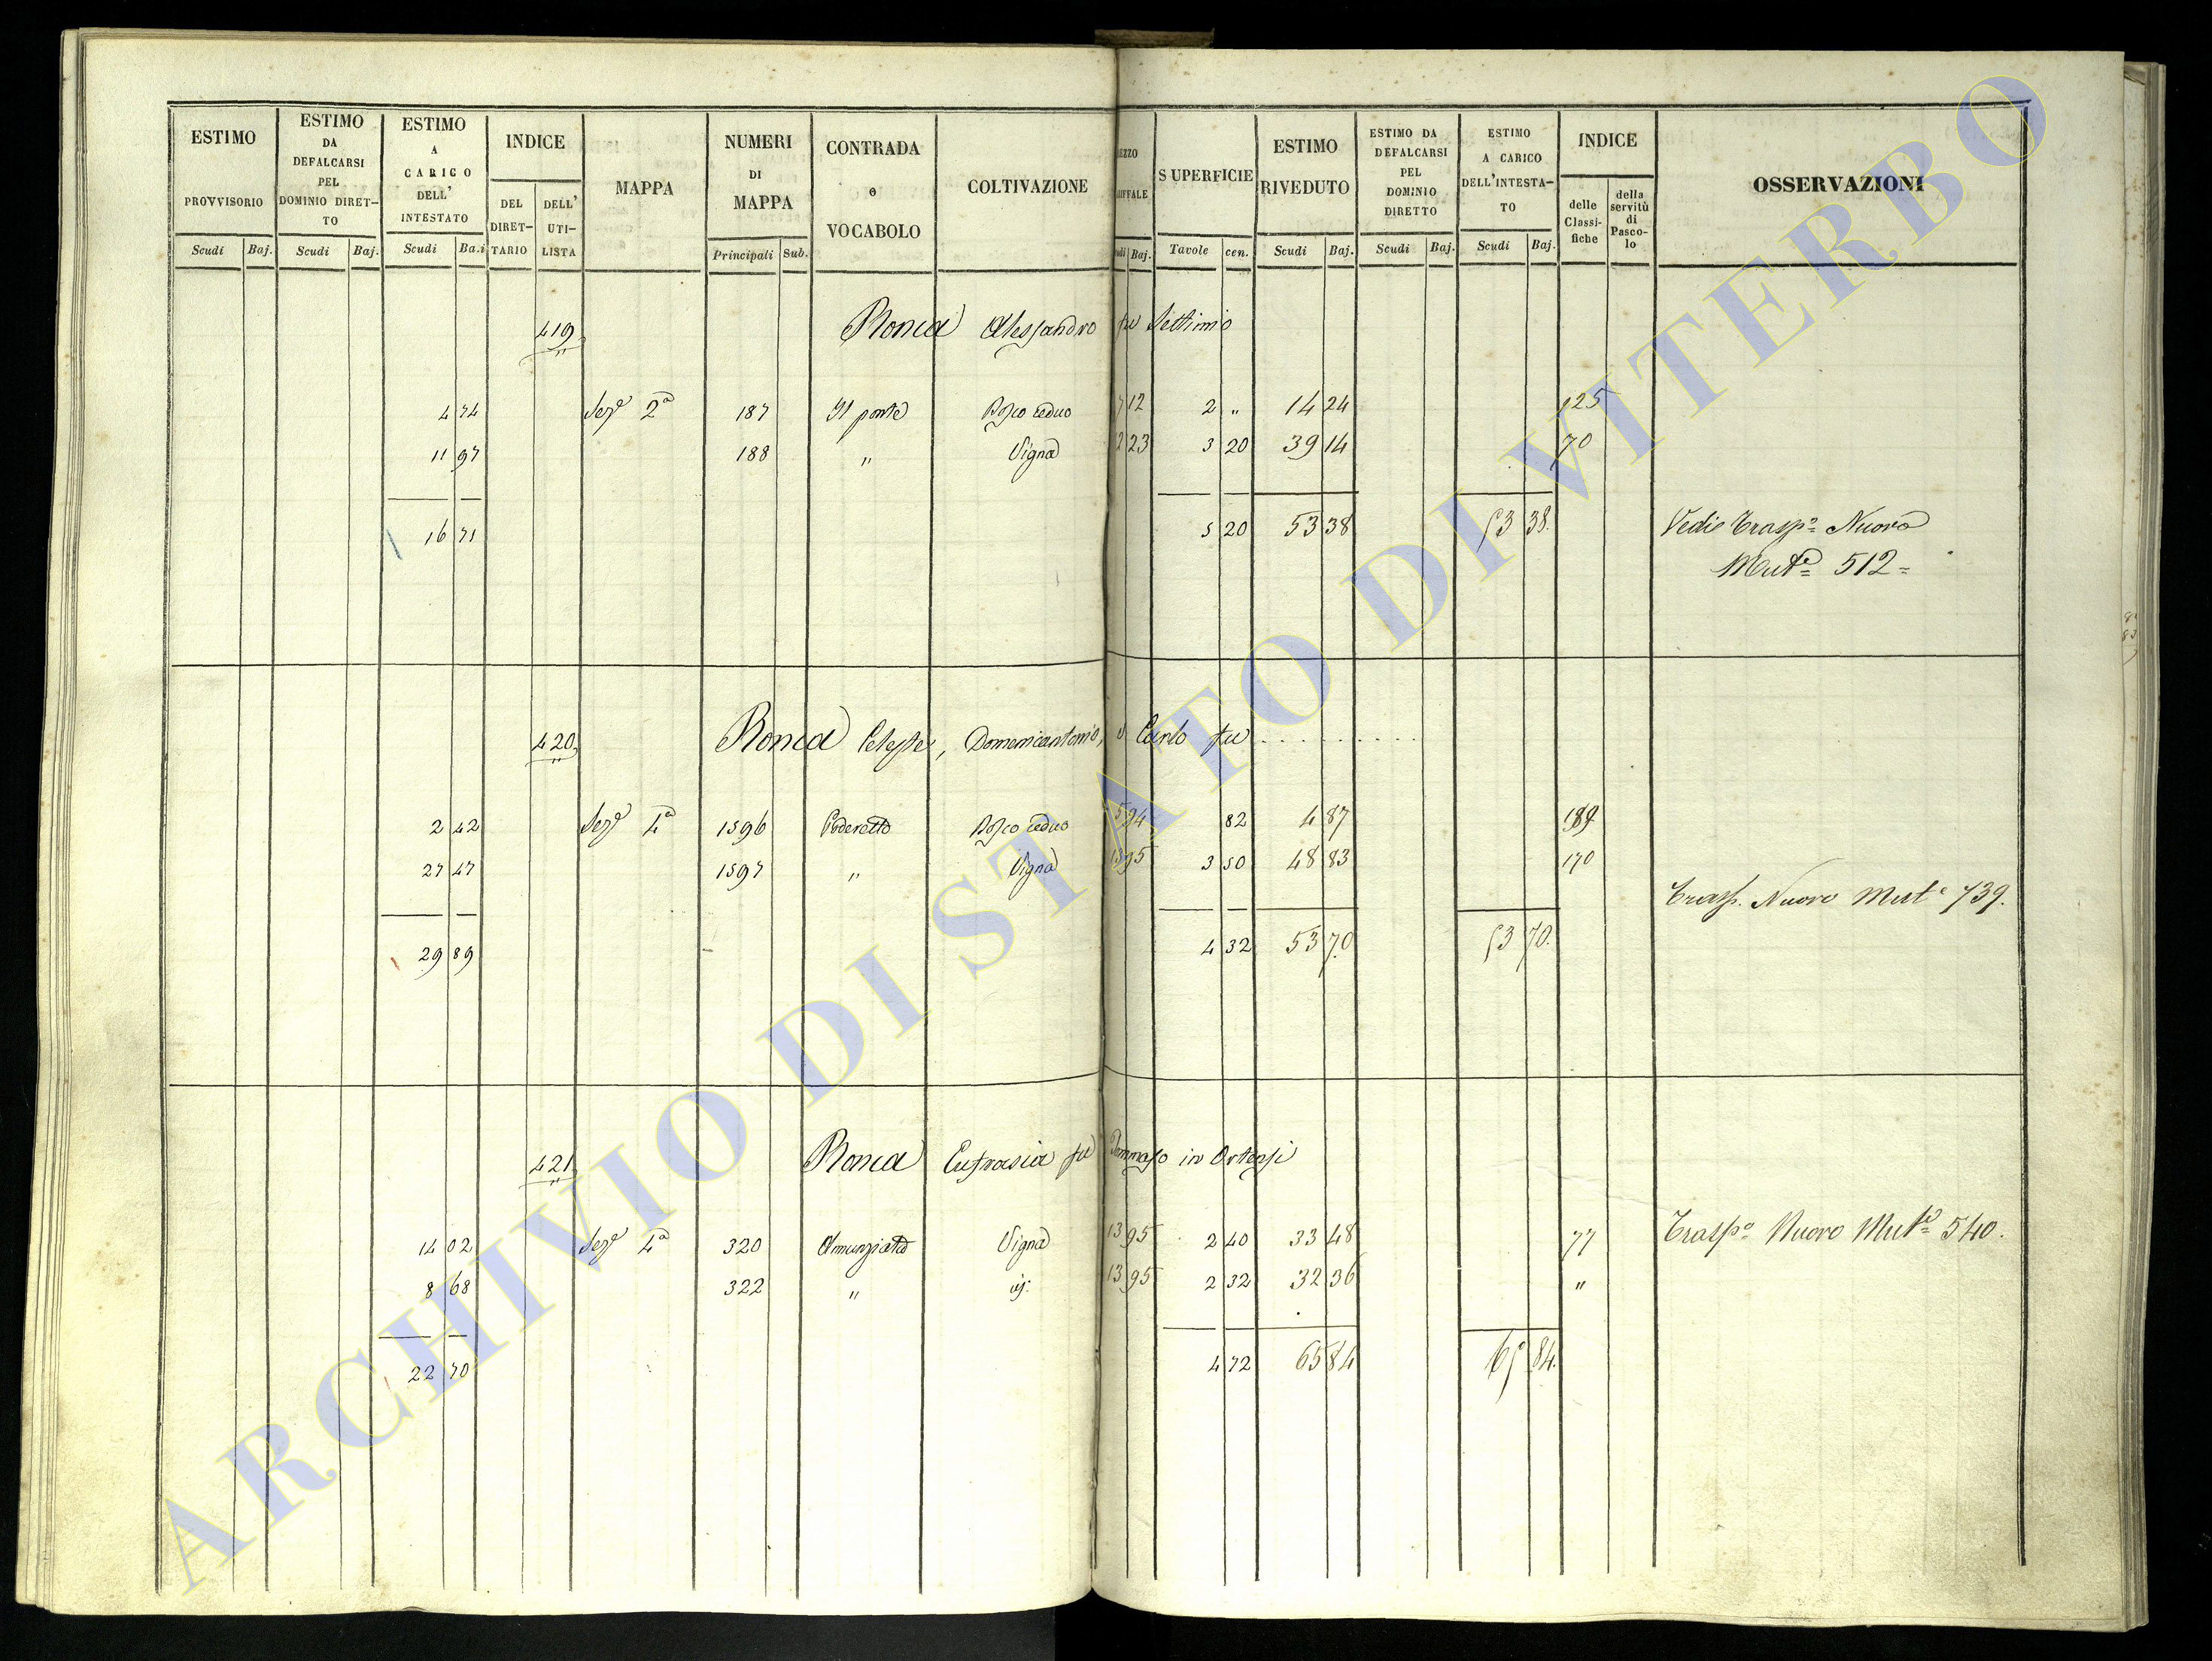 ESTIMO PROVVISORIO
ESTIMO DA DEFALCARSI PEL DOMINIO DIRET-TO
ESTIMO A CARICO DELL' INTESTATO
INDICE
DEL DIRET-TARIO
DELL' UTI-LISTA
MAPPA
NUMERI DI MAPPA
CONTRADA o VOCABOLO
COLTIVAZIONE
SUPERFICIE
ESTIMO RIVEDUTO
ESTIMO DA DEFALCARSI PEL DOMINIO DIRETTO
ESTIMO A CARICO DELL'INTESTA-TO
INDICE
delle Classi-fiche
della servitù di Pasco-lo
OSSERVAZIONI
Scudi Baj. Scudi Baj. Scudi Ba.i Principali Sub. Baj. Tavole cen. Scudi Baj. Scudi Baj. Scudi Baj.
419 Ronca Alessandro fu Settimio
4 74 Sez.e 2a 187 Il ponte Bosco ceduo 7 12 2 " 14 24 125
11 97 188 " Vigna 12 23 3 20 39 14 70
16 71 5 20 53 38 53 38.
Vedi Trasp.o Nuovo
Mut.e 512=
420 Ronca Celeste, Domenicantonio, e Carlo fu . . . . . . . . .
2 42 Sez.e 4a 1596 Poderetto Bosco ceduo 5 94 82 4 87 189
27 47 1597 " Vigna 13 95 3 50 48 83 170
Trasp. Nuovo Mut.e 739.
29 89 4 32 53 70 53 70.
421 Ronca Eufrasia fu Tommaso in Ortensi
14 02 Sez.e 4a 320 Annunziata Vigna 13 95 2 40 33 48 77
Trasp.o Nuovo Mut.e 540.
8 68 322 " 13 95 2 32 32 36 "
22 70 4 72 65 84 65 84.
ARCHIVIO DI STATO DI VITERBO